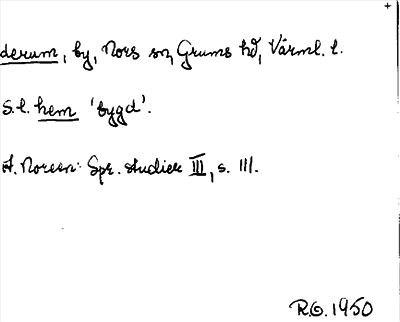 derum, by, Nors sn, Grums hd, Värml. l.
S.l. hem 'bygd'.
A. Noreen: Spr. studier III, s. 111.
R.O. 1950